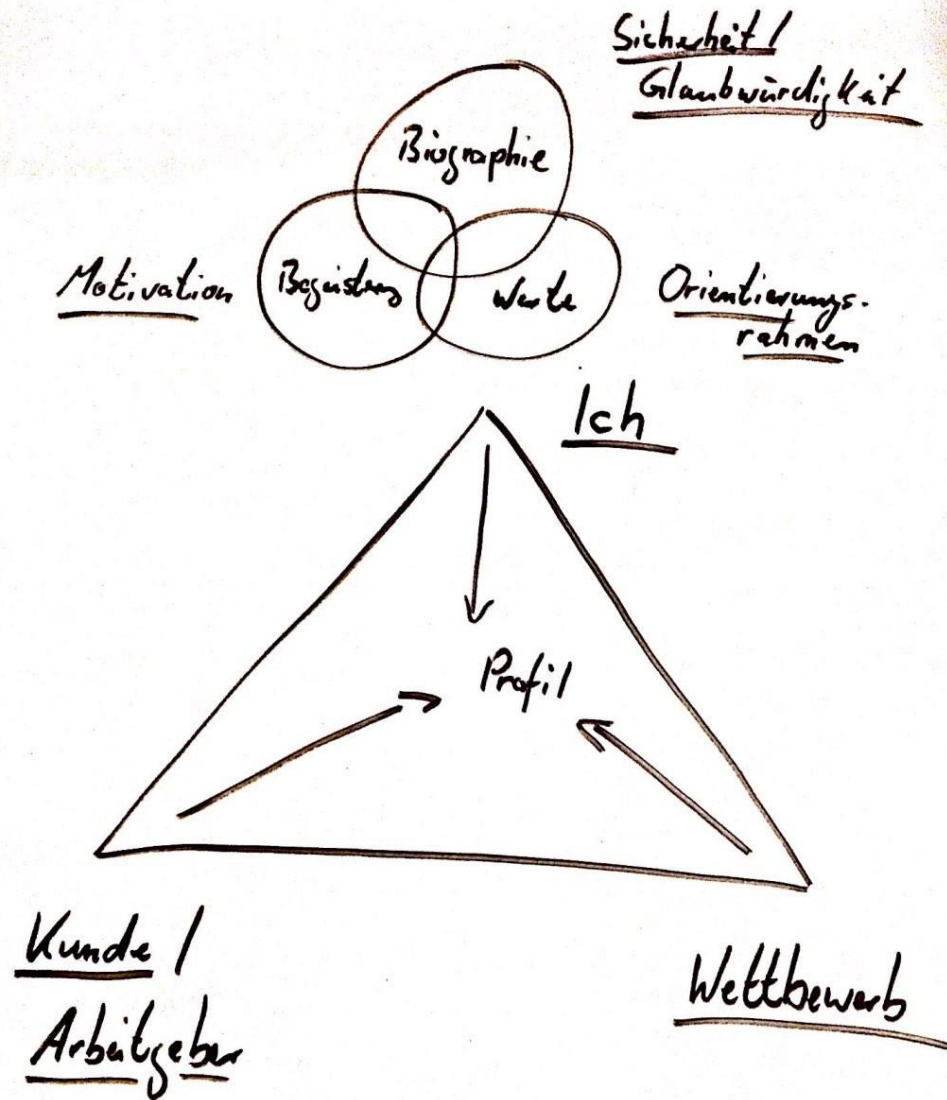 Sicherheit /
Glaubwürdigkeit
Biographie
Motivation
Werte
Orientierungs-
rahmen
Ich
Profil
Kunde /
Arbeitgeber
Wettbewerb